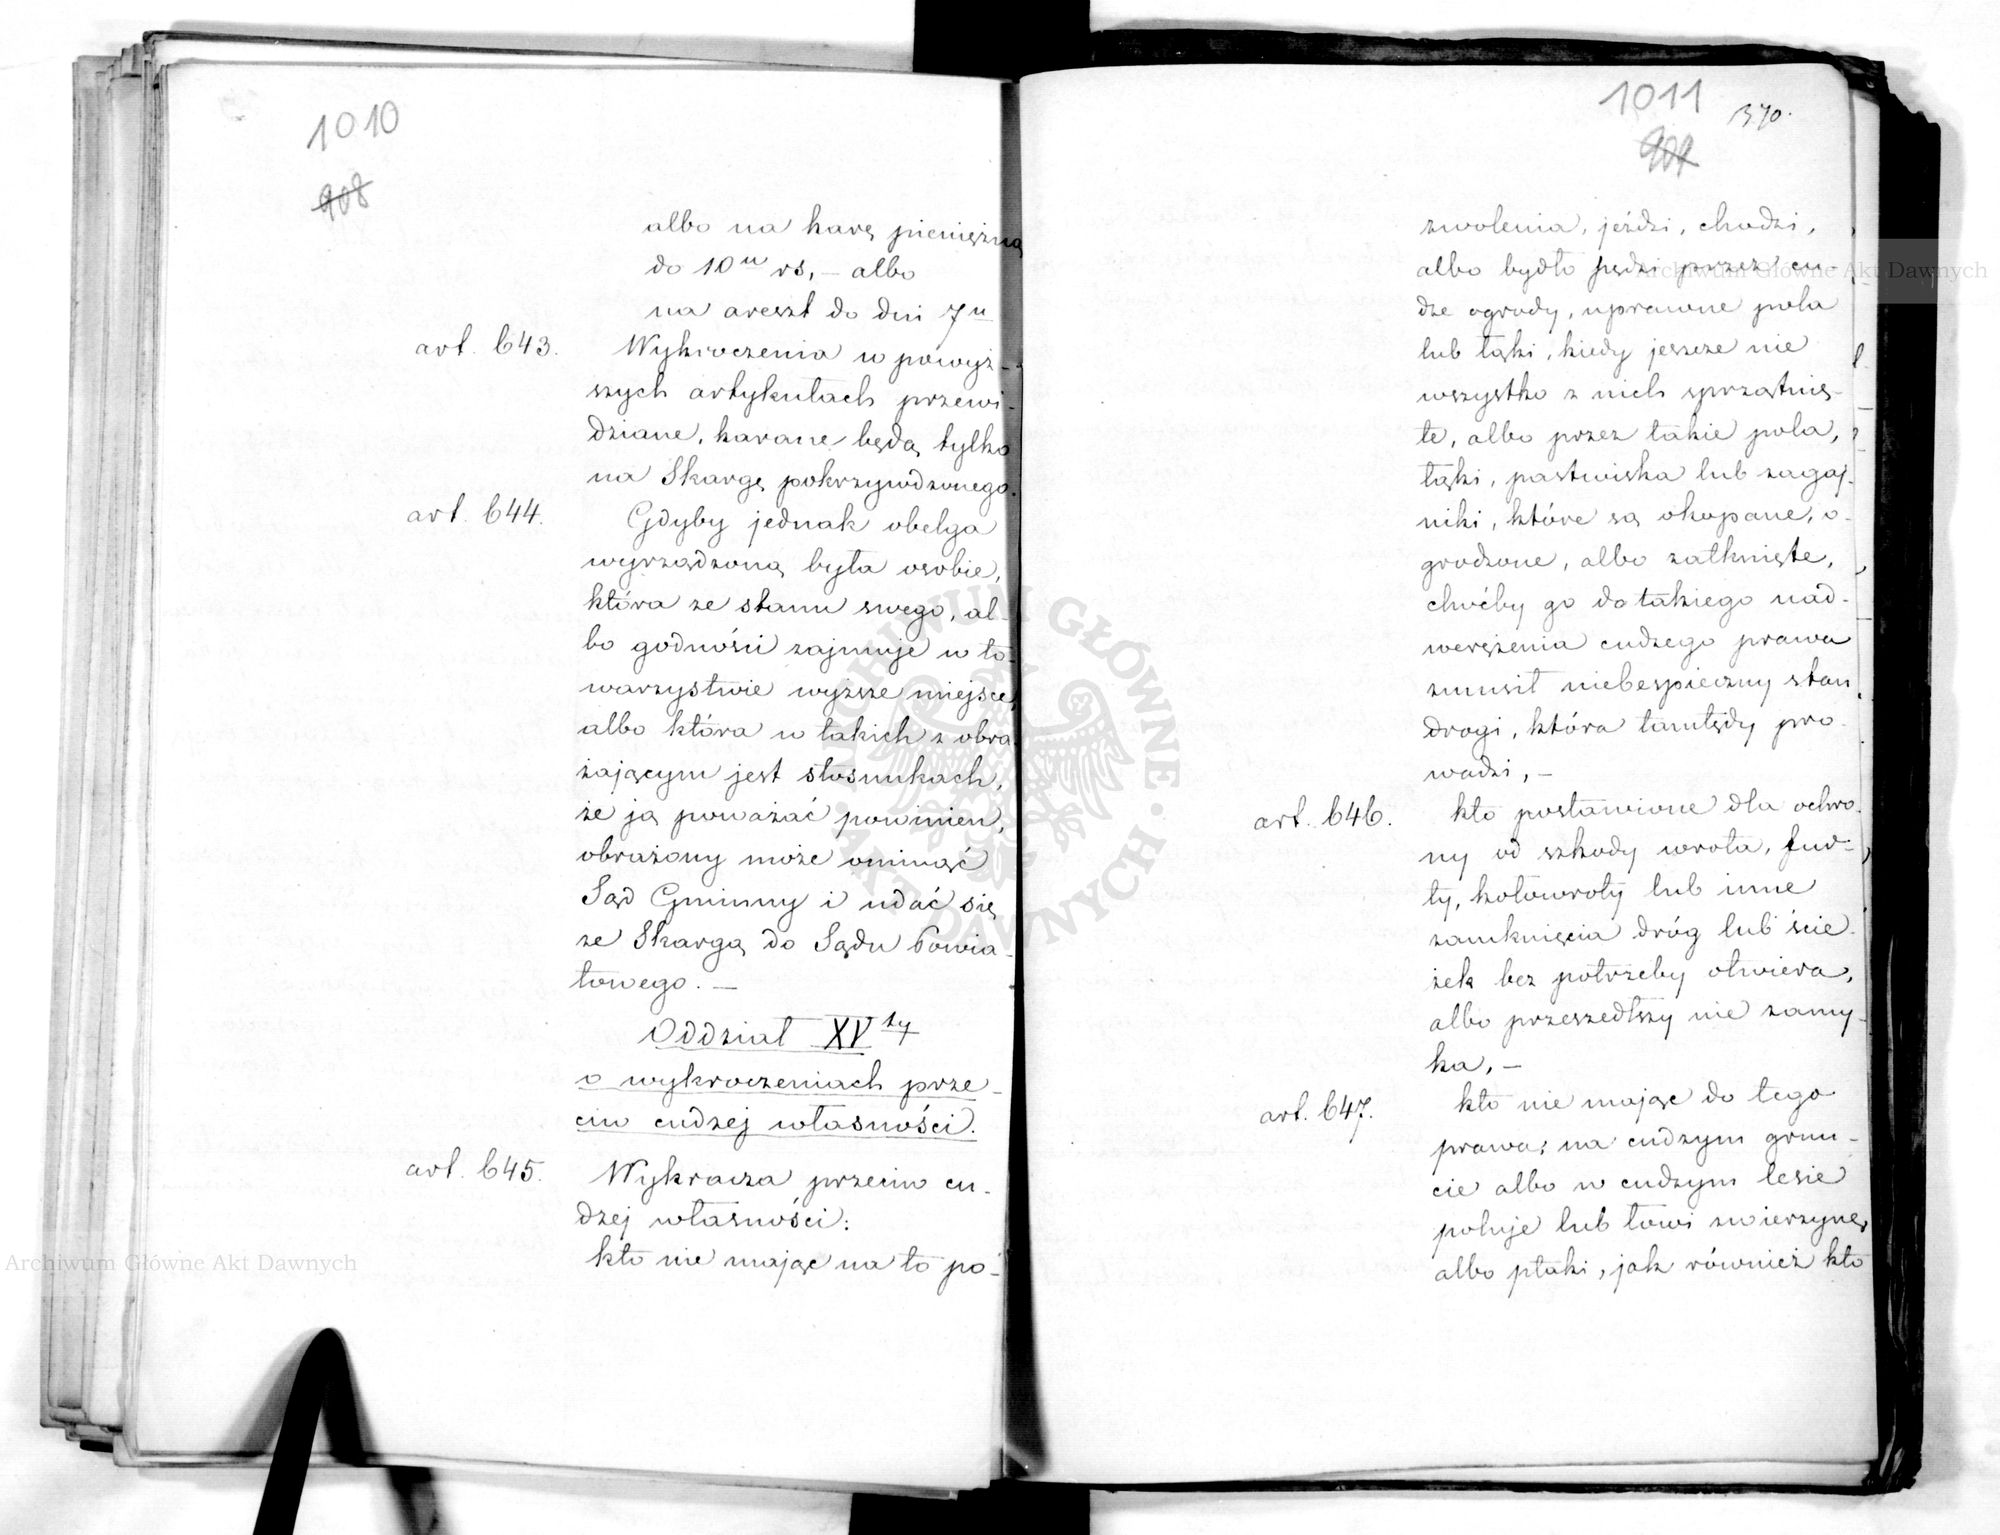 1010
908
albo na karę pieniężną
do 10u rs, – albo
na areszt do dni 7u
art. 643. Wykroczenia w powyż-
szych artykułach przewi-
dziane, karane będą tylko
na Skargę pokrzywdzonego.
art. 644. Gdyby jednak obelga
wyrządzoną była osobie,
która ze stanu swego, al-
bo godności zajmuje w to-
warzystwie wyższe miejsce,
albo która w takich z obra-
żającym jest stosunkach,
że ją poważać powinien,
obrażony może ominąć
Sąd Gminny i udać się
ze Skargą do Sądu Powia-
towego. –
Oddział XVty
o wykroczeniach prze-
ciw cudzej własności.
art. 645. Wykracza przeciw cu-
dzej własności:
kto nie mając na to po-
1011
370.
909
zwolenia, jeździ, chodzi,
albo bydło pędzi przez cu-
dze ogrody, uprawne pola
lub łąki, kiedy jeszcze nie
wszystko z nich sprzątnię-
te, albo przez takie pola,
łąki, pastwiska lub zagaj-
niki, które są okopane, o-
grodzone, albo zatknięte,
chóćby go do takiego nad-
werężenia cudzego prawa
zmusił niebespieczny stan
drogi, która tamtędy pro-
wadzi, –
art. 646. kto postawione dla ochro-
ny od szkody wrota, fur-
ty, kołowroty lub inne
zamknięcia dróg lub ście-
żek bez potrzeby otwiera,
albo przeszedłszy nie zamy-
ka, –
art. 647. kto nie mając do tego
prawa; na cudzym grun-
cie albo w cudzym lesie
poluje lub łowi zwierzynę,
albo ptaki, jak również kto
Archiwum Główne Akt Dawnych
Archiwum Główne Akt Dawnych
ARCHIWUM GŁÓWNE
AKT DAWNYCH